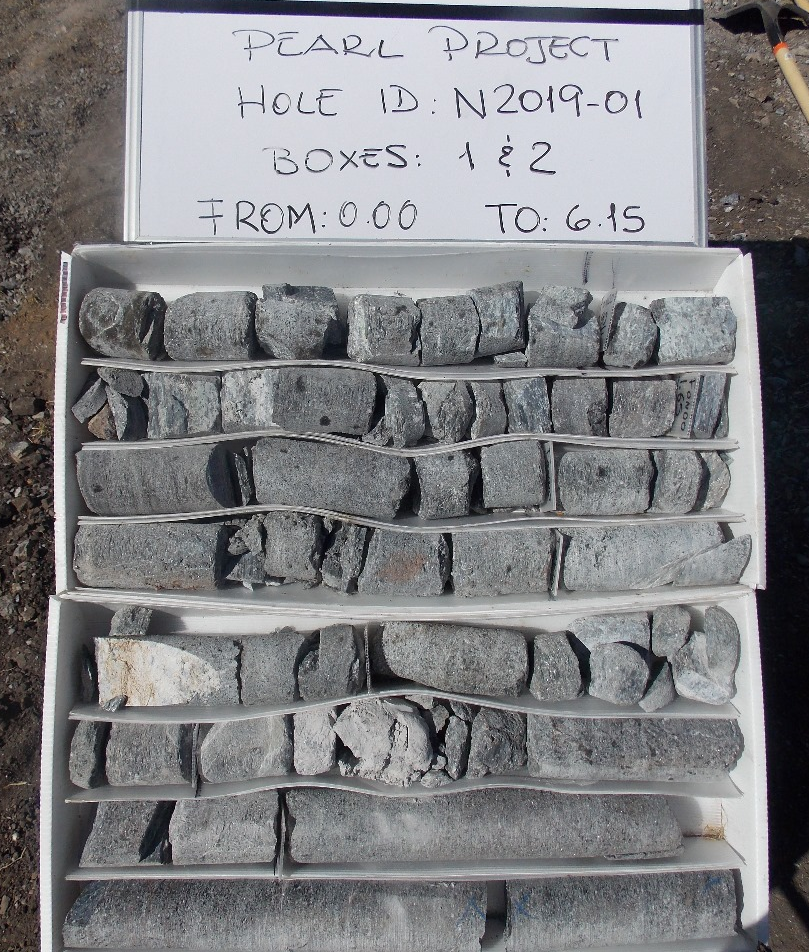 PEARL PROJECT
HOLE ID: N2019-01
BOXES: 1 & 2
FROM: 0.00 TO: 6.15